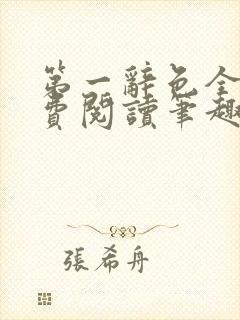 第一辭色全
費閱讀筆趣
張希舟